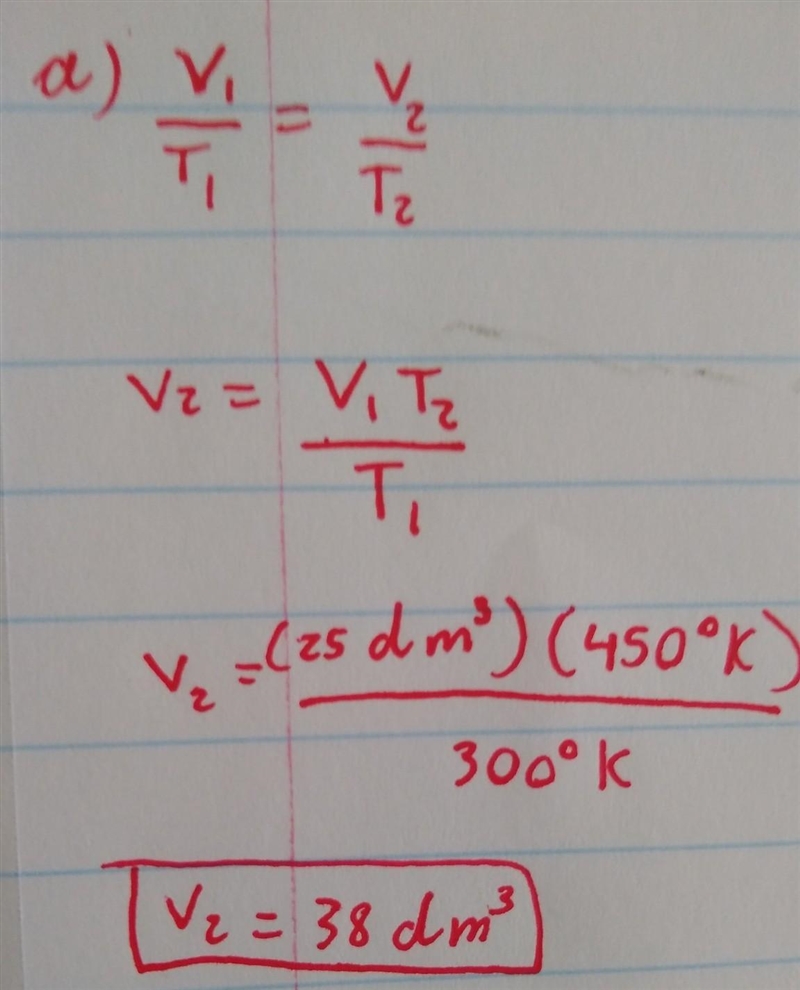 a) V₁/T₁ = V₂/T₂
V₂ = V₁ T₂/T₁
V₂ = (25 dm³)(450°K)/300°K
V₂ = 38 dm³